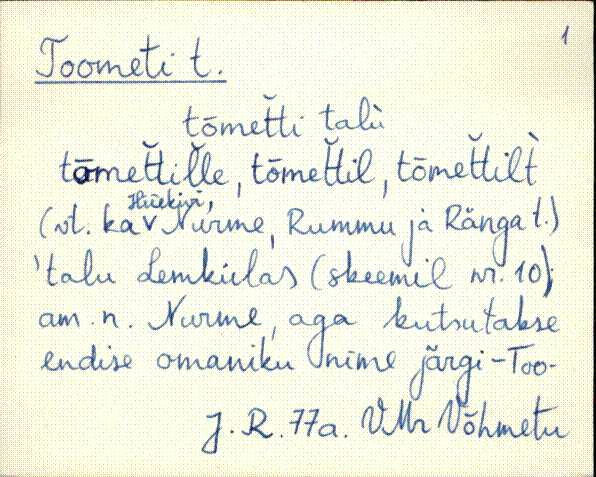 1
Toometi t.
tōmet̆ti talù
tōmet̆til̆le, tōmet̆til, tōmet̆tilt̀
(vt. ka Hiiekivi, Nurme, Rummu ja Ränga t.)
'talu Lemkülas (skeemil nr. 10);
am. n. Nurme, aga kutsutakse
endise omaniku nime järgi - Too-
J. R. 77a. VMr Võhmetu